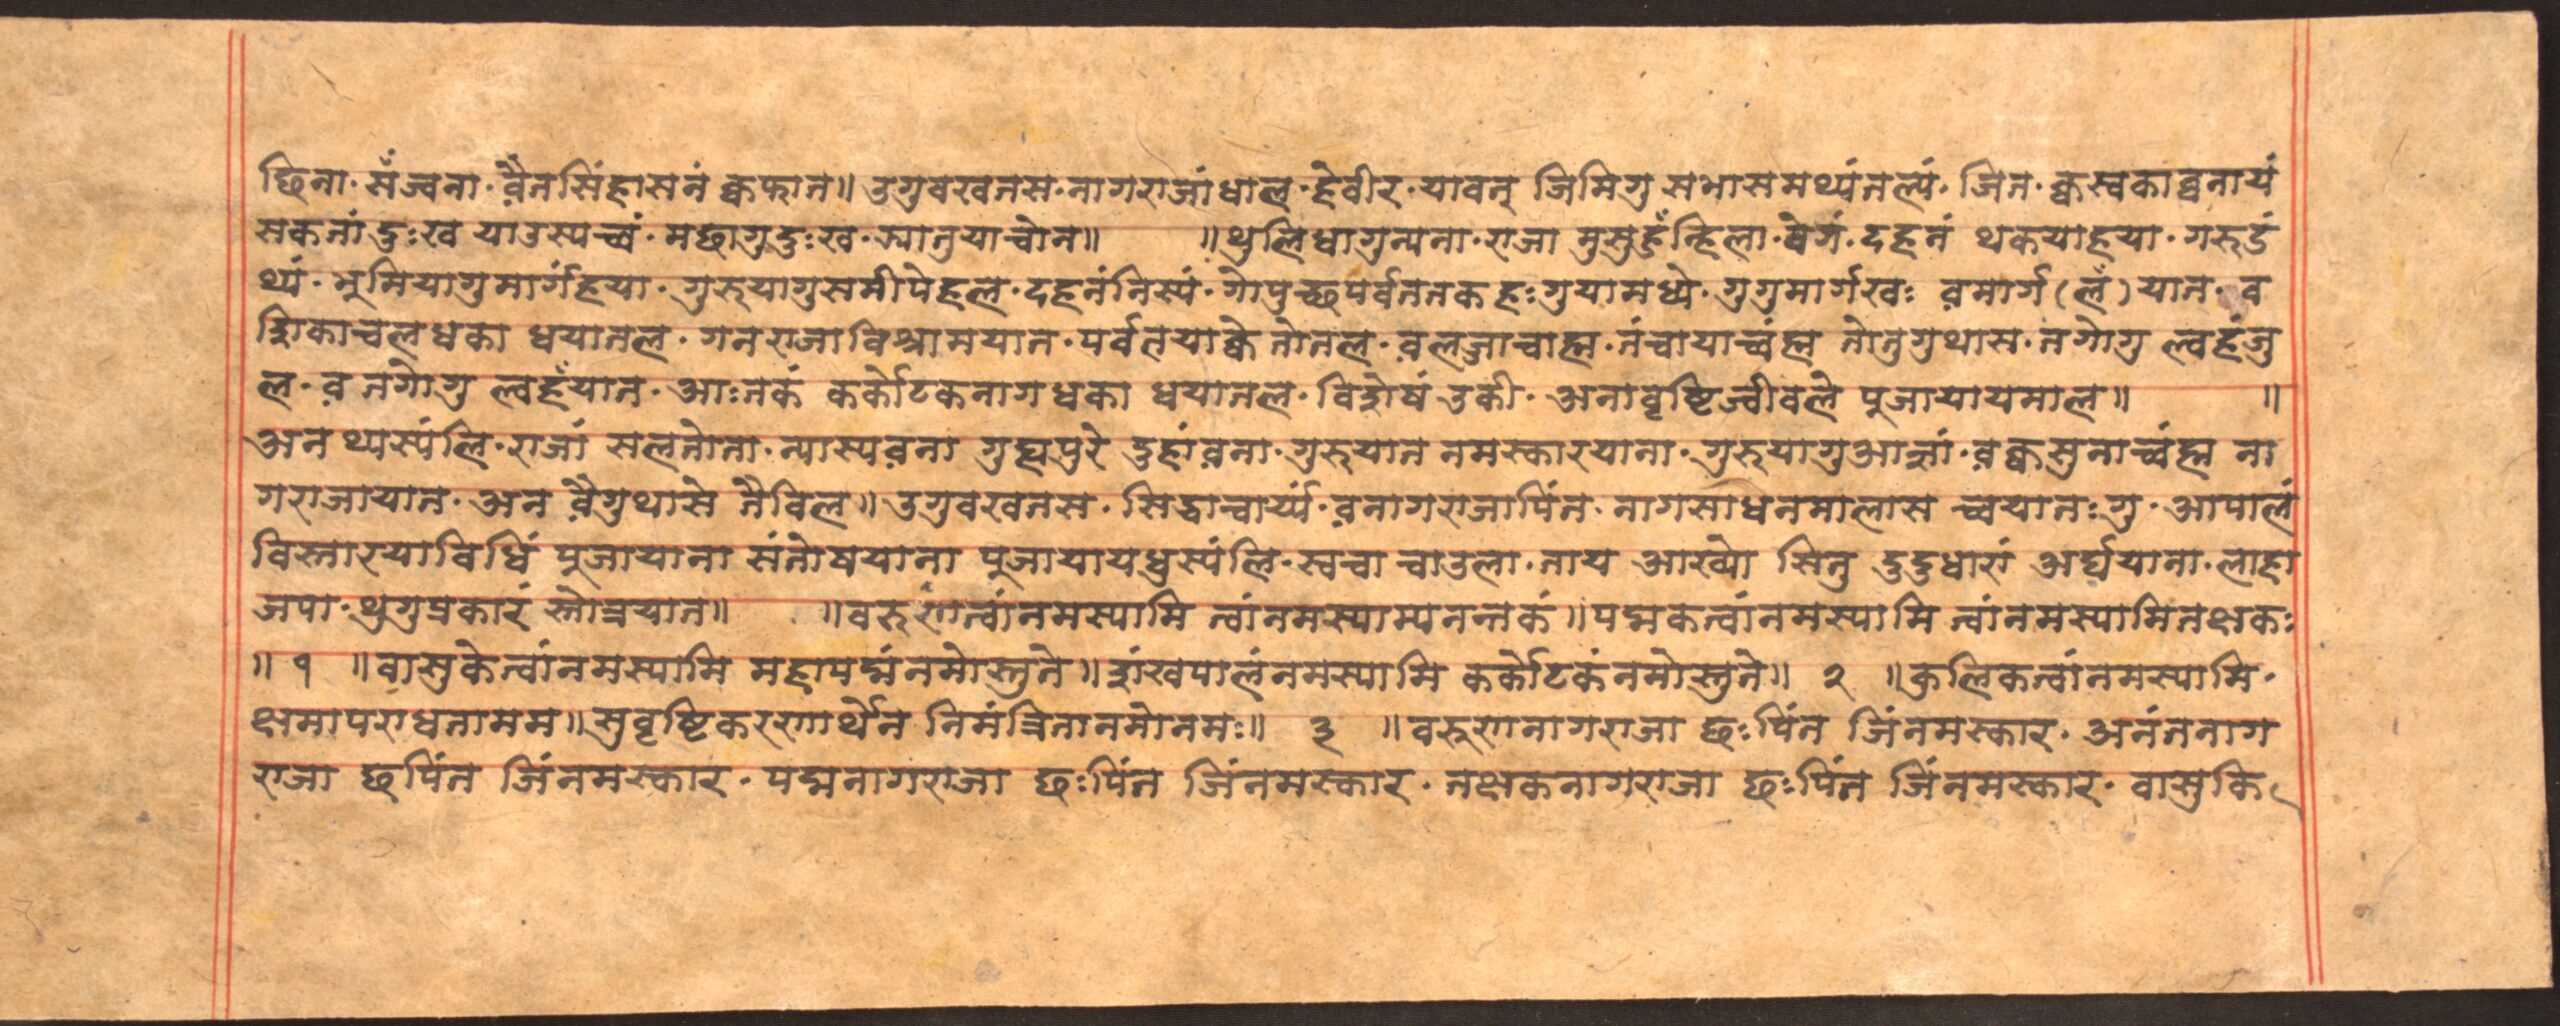 छिना॰ सँज्वना॰ व़ैनसिंहासनं क्वफान॥ उगुवखनस॰ नागराजां धाल॰ हेवीर॰ यावत् जिमिगु सभासमथ्यंनल्यं॰ जिन॰ क्वस्वकाव्वनायं
सकनां दुःख याउस्यच्वं॰ मछागुदुःख॰ ज्यातुयाचोन॥ ॥थुलिधागुन्यना॰ राजा मुसुहुँन्हिला॰ वेगं॰ दहनं थकयाहया॰ गरुडं
थ्यं॰ भुमियागुमार्गंहया॰ गुरुयागुसमीपेहल॰ दहनंनिस्यं॰ गोपुच्छपर्वततक हःगुयामध्ये॰ गुगुमार्गखः व़मार्ग (लं) यात॰ व
शिकाचलधका धयातल॰ गनराजाविश्रामयात॰ पर्वतयाक्वेतोतल॰ व़लज्जाचाह्म॰ नंचायाच्वंह्म तोतुगुथास॰ नगोगु ल्वहंजु
ल॰ व़ नगोगु ल्वहंयात॰ आःतकं कर्कोटकनागधका धयातल॰ विशेषं उकी॰ अनावृष्टिज्वीवले पुजायायमाल॥ ॥
अन थ्यस्यंलि॰ राजां सलतोता॰ न्यास्यव़ना गुह्यपुरे दुहांव़ना॰ गुरुयात नमस्कारयाना॰ गुरुयागुआज्ञां॰ व़क्वसुनाच्वंह्म ना
गराजायात॰ अन व़ैगुथासे तैविल॥ उगुवखनस॰ सिद्धाचार्य्यं॰ व़नागराजापिंत॰ नागसाधनमालास च्वयातःगु॰ आपालं
विस्तारयाविधिं पुजायाना संतोषयाना पुजायायधुस्यंलि॰ स्वचा चाउला॰ ताय आख्यो सितु दुदुधारां अर्घ्ययाना॰ लाहा
जपा॰ थुगुप्रकारं स्तोत्रयात॥ ॥वरुणत्वांनमस्यामि त्वांनमस्याम्यनन्तकं॥ पद्मकत्वांनमस्यामि त्वांनमस्यामितक्षकः
॥ १ ॥ वासुकेत्वांनमस्यामि महापद्मंनमोस्तुते॥ शंखपालंनमस्यामि कर्कोटकंनमोस्तुते॥ २ ॥ कुलिकत्वांनमस्यामि॰
क्षमापराधतामम॥ सुवृष्टिकरणार्थेन निमंत्रितानमोनमः॥ ३ ॥ वरूणनागराजा छःपिंत जिंनमस्कार॰ अनंतनाग
राजा छपिंत जिंनमस्कार॰ पद्मनागराजा छःपिंत जिंनमस्कार॰ तक्षकनागराजा छःपिंत जिंनमस्कार॰ वासुकि